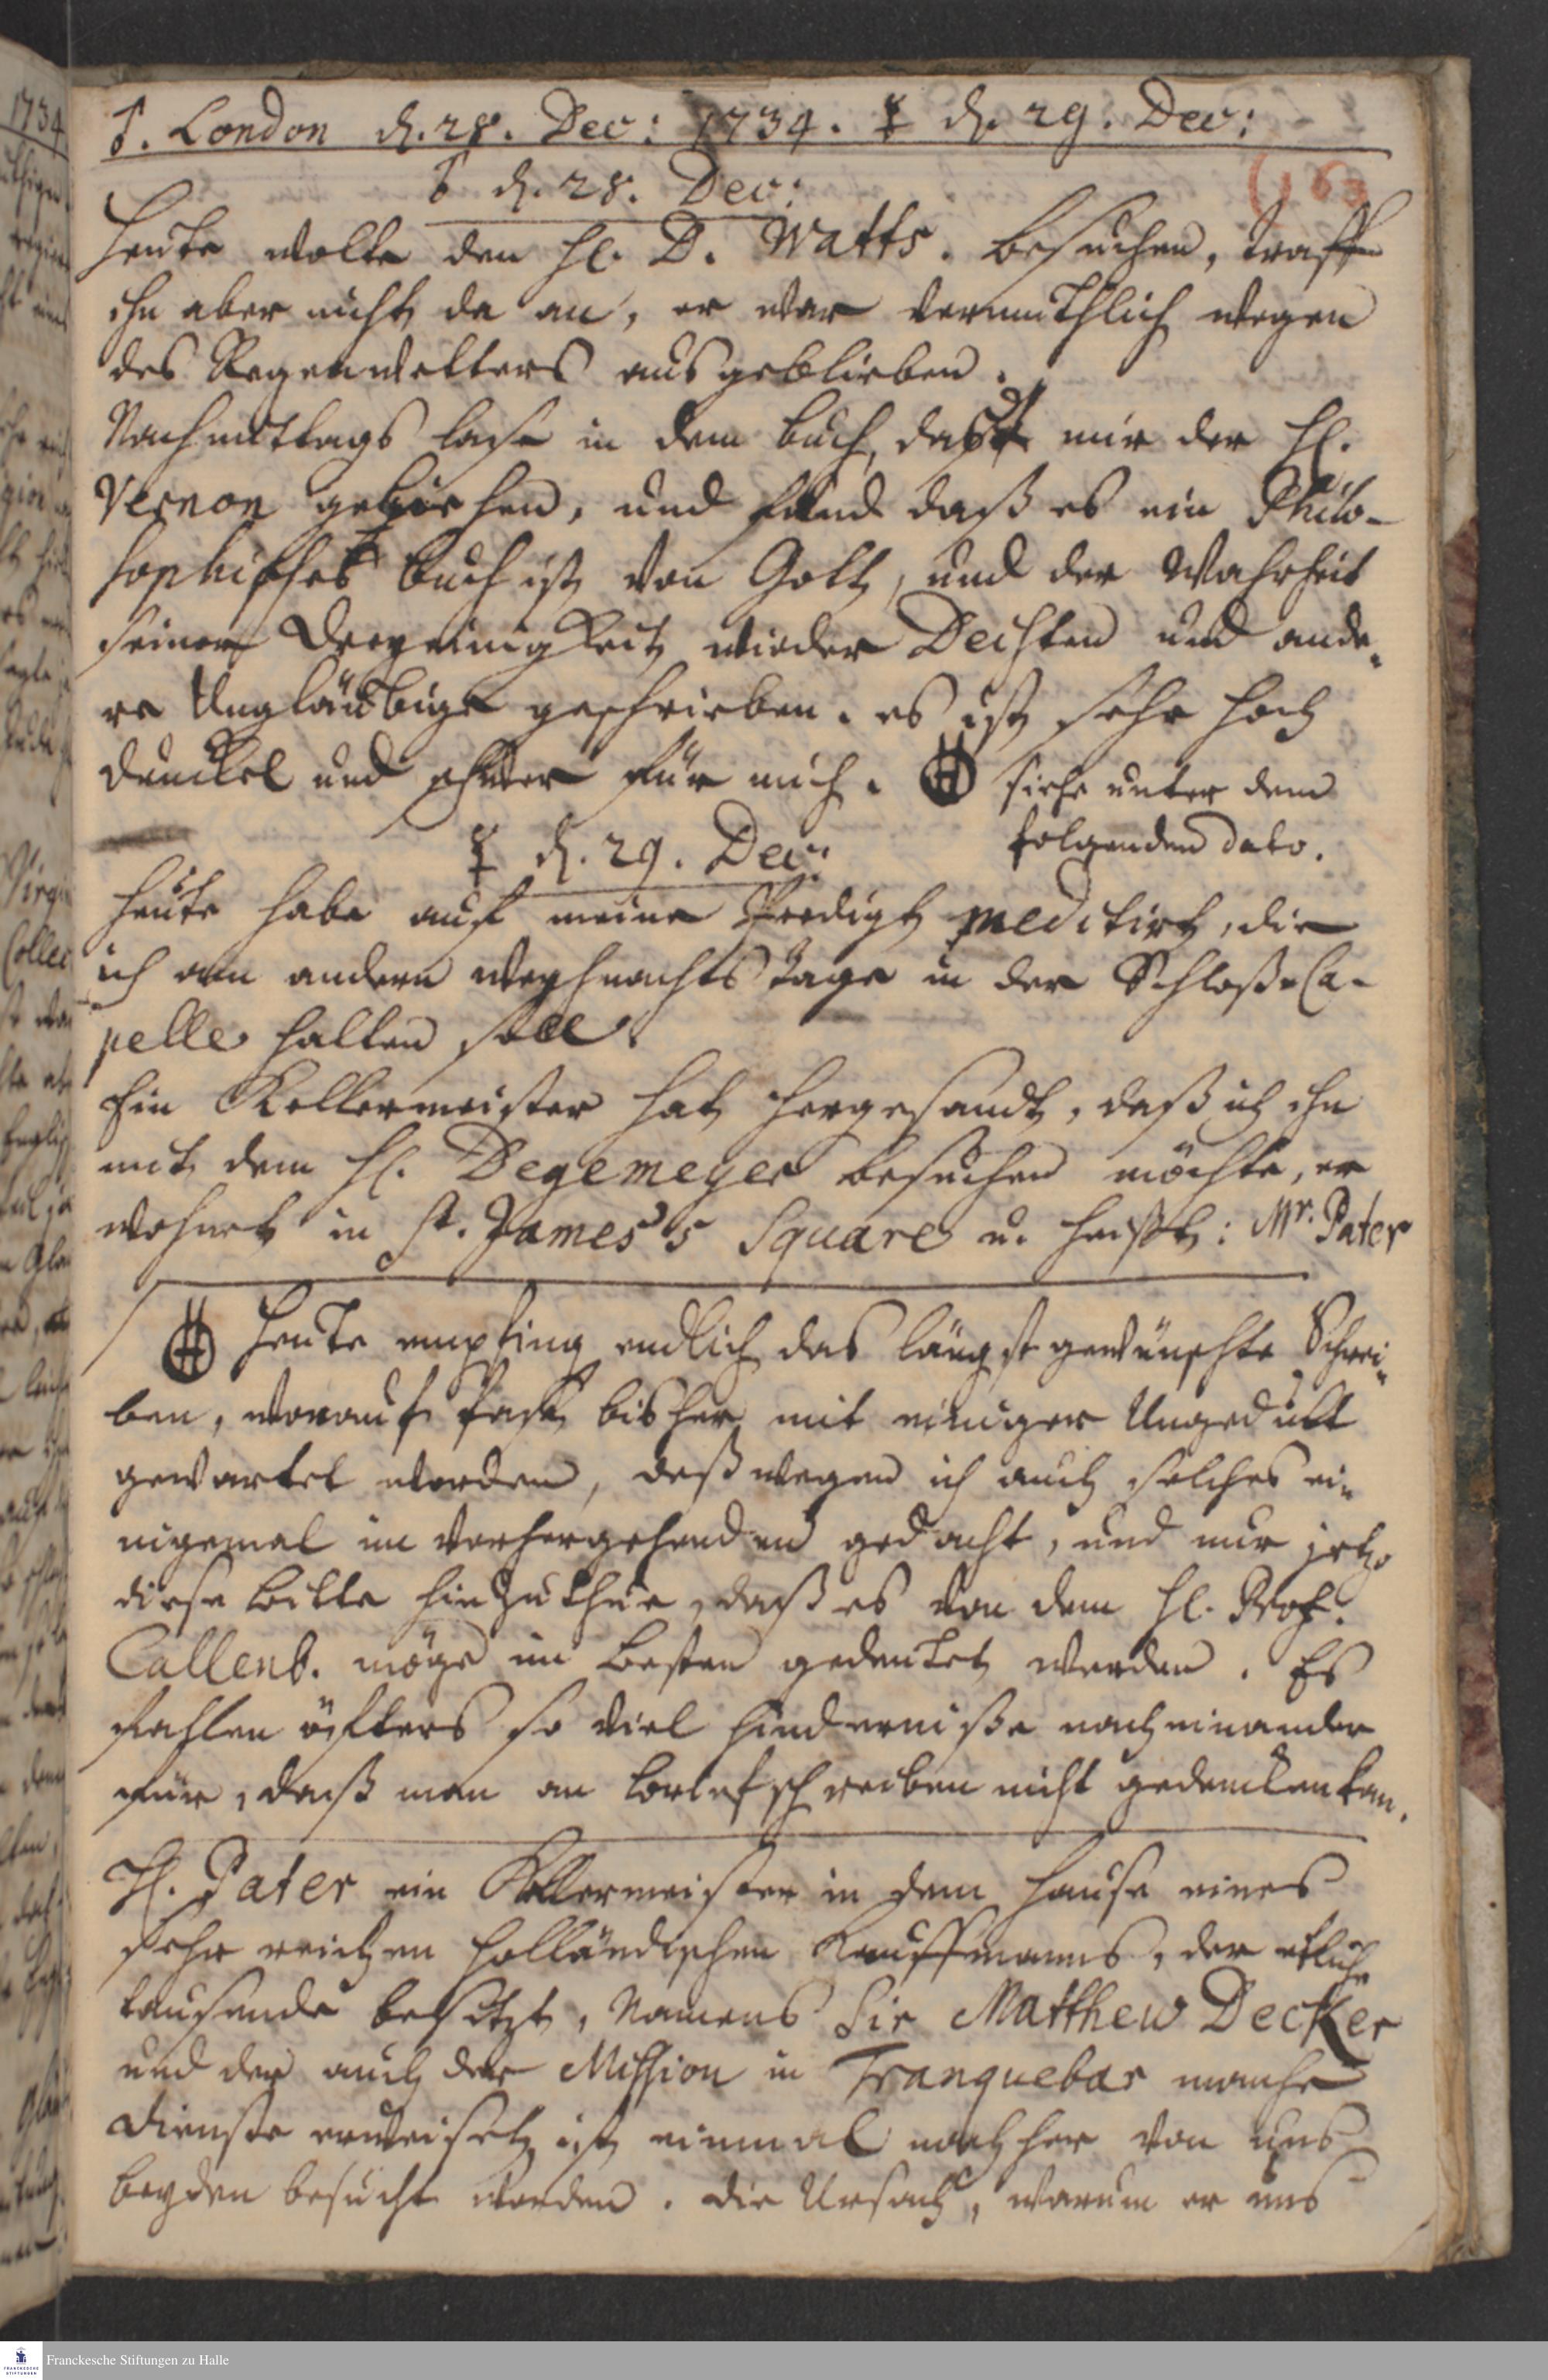 ♄. London d. 28. Dec: 1734. ☿ d. 29. Dec:
(163
♄ d. 28. Dec:
Heute wolte den H. D. Watts. besuchen, traff
ihn aber nicht da an, er war vermuthlich wegen
des Regenwetters ausgeblieben.
Nachmittags lase in dem buch, das mir der H.
Vernon geliehen, und fand daß es ein Philo-
sophisches buch ist von Gott, und der Wahrheit
seiner Dreyeinigkeit wieder Deisten und ande-
re Ungläubige geschrieben. es ist sehr hoch
dunckel und schwer für mich. siehe unter dem
folgenden dato.
☿ d. 29. Dec:
Heute habe auf meine Predigt meditirt, die
ich am andern Weyhnachts tage in der Schloß-Ca-
pelle halten soll.
Ein Kellermeister hat hergesandt, daß ich ihn
mit dem H. Degemeyer besuchen möchte, er
wohnet in St. James's Square u. heißt: Mr. Pater
Heute empfing endlich das längst gewünschte Schrei-
ben, worauf fast bisher mit einiger Ungedult
gewartet worden, deßwegen ich auch solches ei-
nigemal im vorhergehenden gedacht, und nur jetzo
diese bitte hinzuthue, daß es von dem H. Prof.
Callenb. möge im besten gedeutet werden. Es
fallen öffters so viel hinderniße nach einander
für, daß man an briefschreiben nicht gedencken kan.
H. Pater ein Kellermeister in dem Hause eines
sehr reichen holländischen Kauffmanns, der etliche
tausende besitzt, Namens Sir Matthew Decker
und der auch der Mission in Tranquebar manche
Dienste erweiset, ist einmal nachher von uns
beyden besucht worden. die Ursach, warum er uns
Franckesche Stiftungen zu Halle